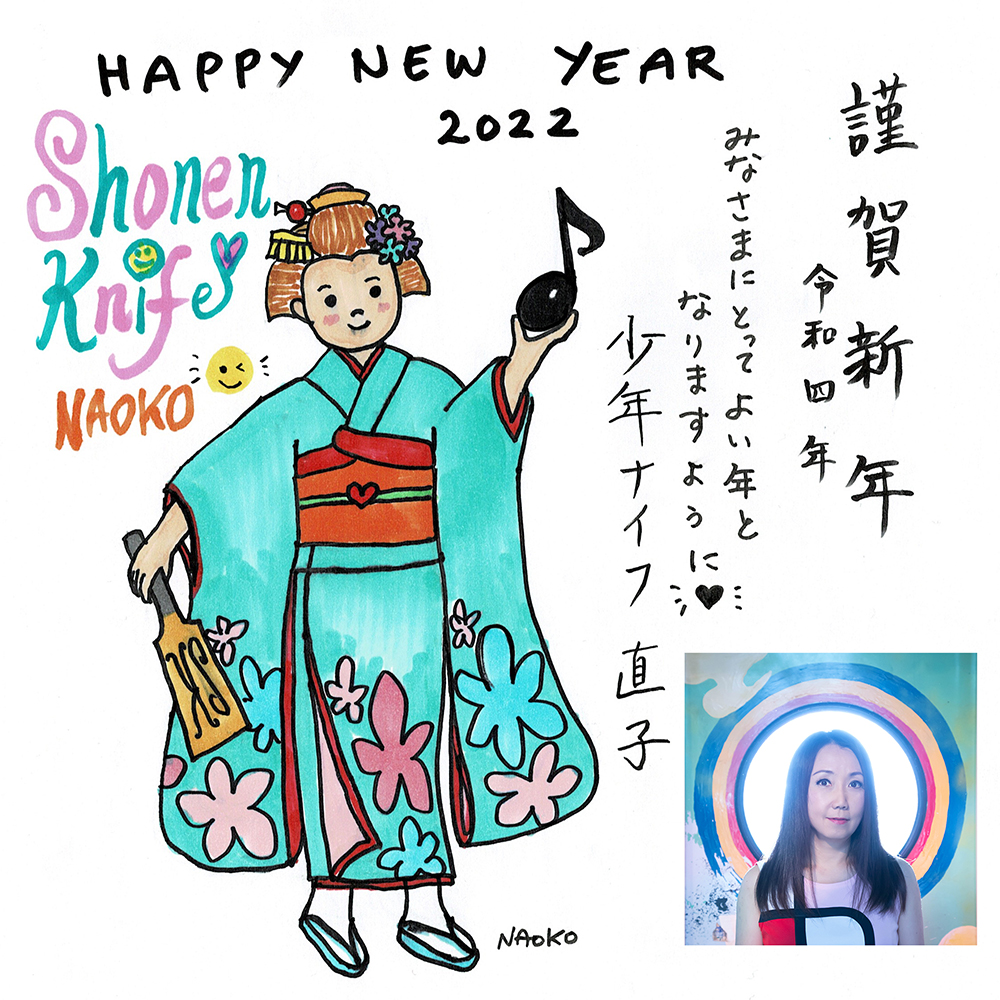 HAPPY NEW YEAR
2022
Shonen
Knife
NAOKO
謹賀新年
令和四年
みなさまにとってよい年と
なりますように♥
少年ナイフ 直子
SK
NAOKO